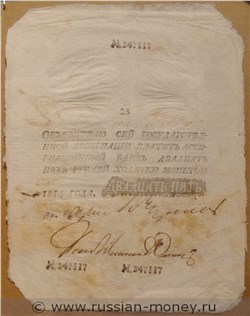 №347117
25
ОБЪЯВИТЕЛЮ СЕЙ ГОСУДАРСТВЕН-
НОЙ АССИГНАЦИИ ПЛАТИТЪ АССИ-
ГНАЦИОННЫЙ БАНКЪ ДВАДЦАТЬ
ПЯТЬ РУБЛЕЙ ХОДЯЧЕЮ МОНЕТОЮ
1814 ГОДА. ДВАДЦАТЬ ПЯТЬ
№347117 №347117
www.russian-money.ru